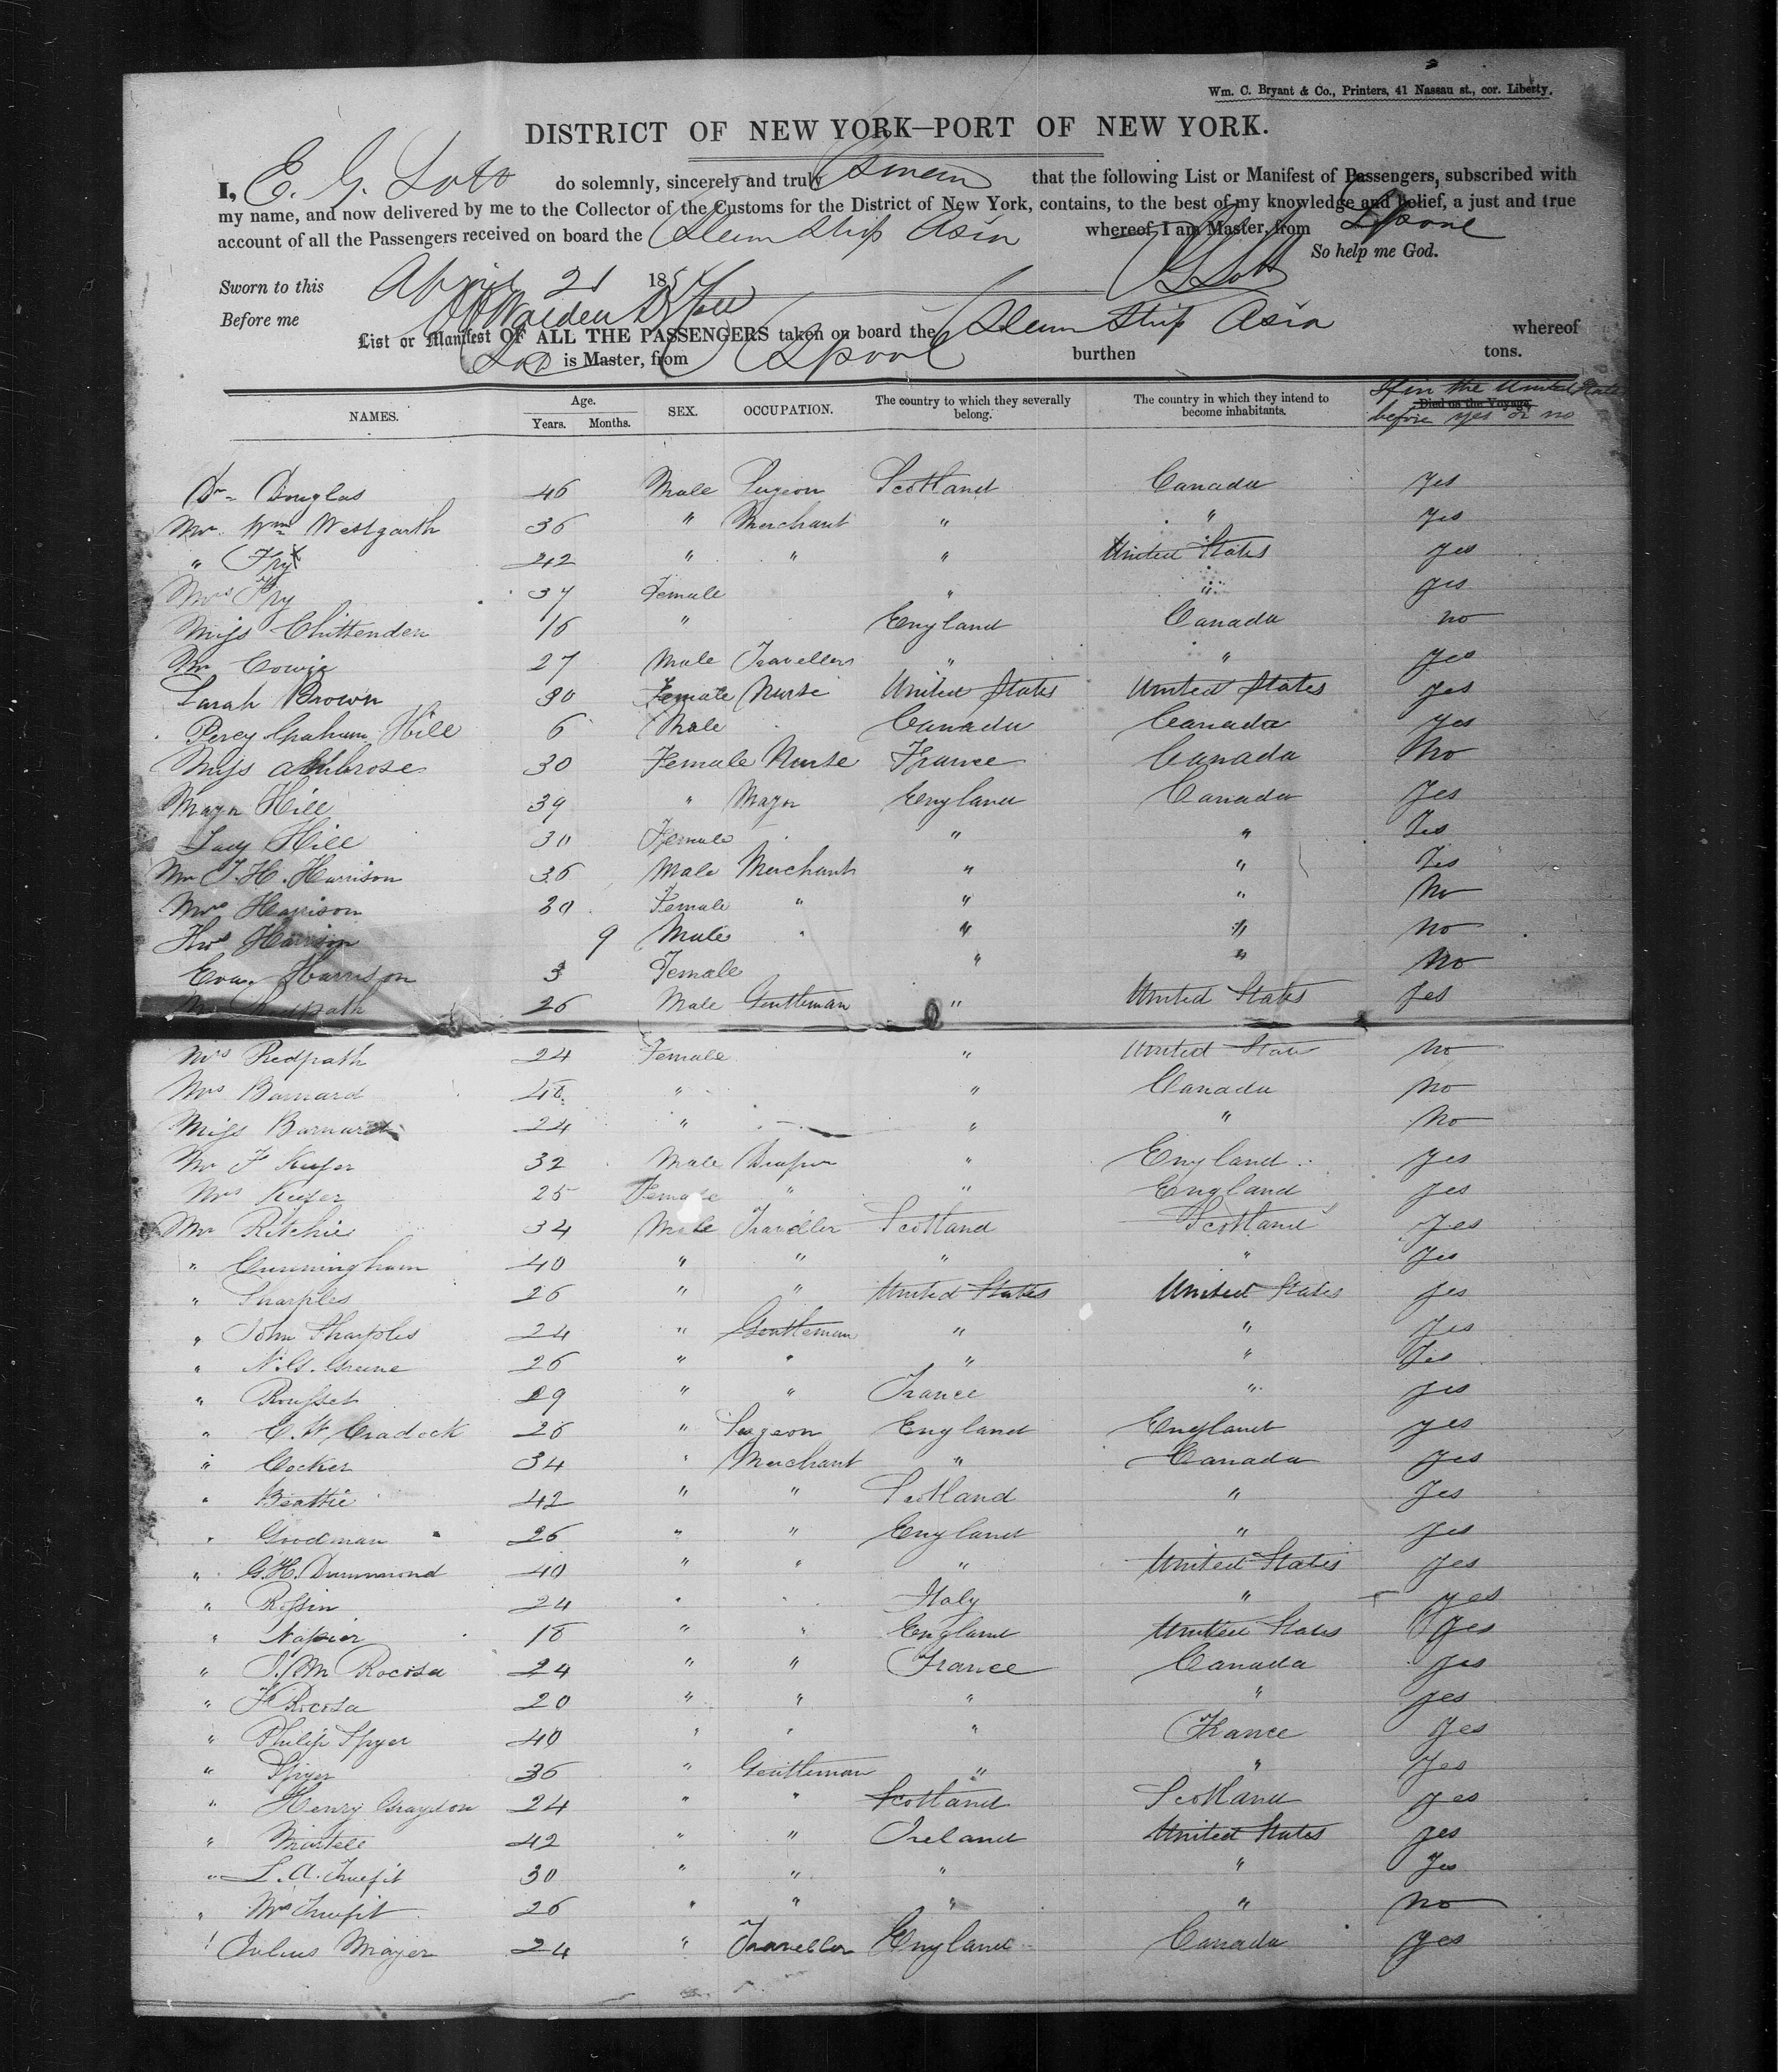 Wm. C. Bryant & Co., Printers, 41 Nassau st., cor. Liberty.
DISTRICT OF NEW YORK—PORT OF NEW YORK.
I, E. G. Lott do solemnly, sincerely and truly swear that the following List or Manifest of Passengers, subscribed with
my name, and now delivered by me to the Collector of the Customs for the District of New York, contains, to the best of my knowledge and belief, a just and true
account of all the Passengers received on board the Steam Ship Asia whereof I am Master, from Lpool
So help me God.
Sworn to this April 21 185 E G Lott
Before me
List or Manifest OF ALL THE PASSENGERS taken on board the Steam Ship Asia whereof
Lott is Master, from Lpool burthen tons.
NAMES. Age. Years. Months. SEX. OCCUPATION. The country to which they severally belong. The country in which they intend to become inhabitants. Died on the Voyage. If in the United States before yes or no
Dr. Douglas 46 Male Surgeon Scotland Canada Yes
Mr. Wm Westgarth 36 " Merchant " " Yes
" Fry 42 " " " United States Yes
Mrs Fry 37 Female " " Yes
Miss Chittenden 16 " England Canada no
Mr Cowie 27 Male Travellers " " Yes
Sarah Brown 30 Female Nurse United States United States Yes
Percy Graham Hill 6 Male Canada Canada Yes
Miss Ambrose 30 Female Nurse France Canada No
Major Hill 39 " Major England Canada Yes
Lady Hill 30 Female " " Yes
Mr J. H. Harrison 36 Male Merchant " " Yes
Mrs Harrison 30 Female " " " No
Thos Harrison 9 Male " " " No
Eva Harrison 3 Female " " No
Mr Redpath 26 Male Gentleman " United States Yes
Mrs Redpath 24 Female " United States No
Mrs Barnard 48 " " Canada No
Miss Barnard 24 " " " No
Mr F Kuper 32 Male Draper " England Yes
Mrs Kuper 25 Female " " England Yes
Mr Ritchie 34 Male Traveller Scotland Scotland Yes
" Cunningham 40 " " " " Yes
" Sharples 26 " " United States United States Yes
" John Sharples 24 " Gentleman " " Yes
" N. G. Greene 26 " " " " Yes
" Rousset 29 " " France " Yes
" C. W. Cradock 26 " Surgeon England England Yes
" Cocker 34 " Merchant " Canada Yes
" Beattie 42 " " Scotland " Yes
" Goodman 26 " " England " Yes
" G. H. Drummond 40 " " " United States Yes
" Rossin 24 " " Italy " Yes
" Napier 18 " " England United States Yes
" J. M Rocosa 24 " " France Canada Yes
" F Rocosa 20 " " " " Yes
" Philip Spyer 40 " " " France Yes
" Spyer 36 " Gentleman " " Yes
" Henry Graydon 24 " " Scotland Scotland Yes
" Martell 42 " " Ireland United States Yes
" L. A. Truefit 30 " " " " Yes
" Mrs Truefit 26 " " " " No
" Julius Mayer 24 " Traveller England Canada Yes